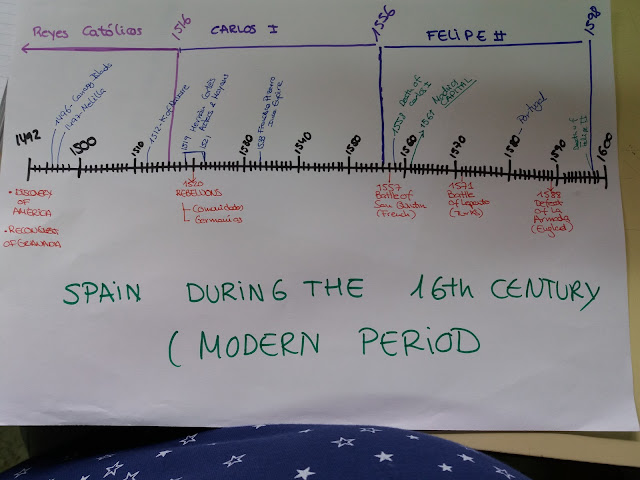 Reyes Católicos
1516
CARLOS I
1556
FELIPE II
1598
1496 - Canary Islands
1497 - Melilla
1512 -
1519 Hernán Cortés
1521 Aztecs & Mayans
1528 Francisco Pizarro
Inca Empire
1558 Death of
Carlos I
1561 Madrid
CAPITAL
1580 - Portugal
Death of
Felipe II
1492
1500
1510
1530
1540
1550
1560
1570
1580
1590
1600
• DISCOVERY
OF
AMERICA
• RECONQUEST
OF GRANADA
1520
REBELLIONS
Comunidades
Germanias
1557
Battle of
San Quintin
(French)
1571
Battle
of Lepanto
(Turks)
1588
Defeat
of La
Armada
(England)
SPAIN DURING THE 16th CENTURY
( MODERN PERIOD